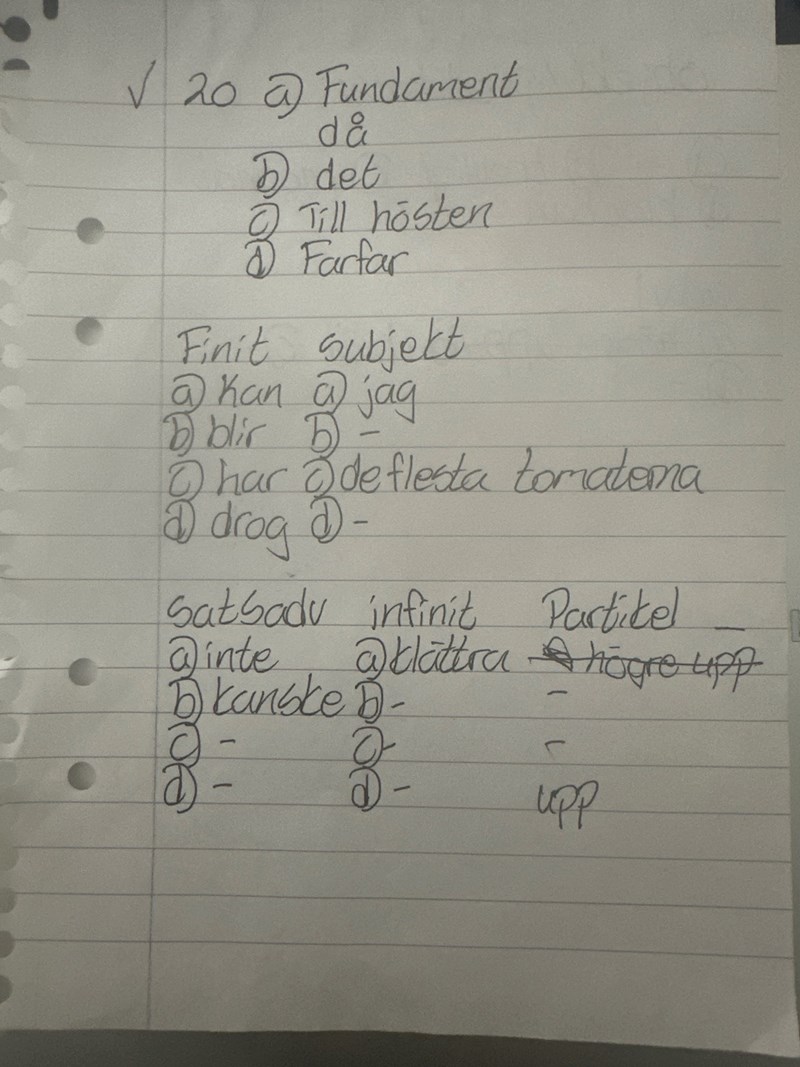 √ 20 a) Fundament
då
b) det
c) Till hösten
d) Farfar
Finit subjekt
a) kan a) jag
b) blir b) -
c) har c) de flesta tomaterna
d) drog d) -
satsadv infinit Partikel _
a) inte a) klättra högre upp
b) kanske b) - -
c) - c) - -
d) - d) - upp